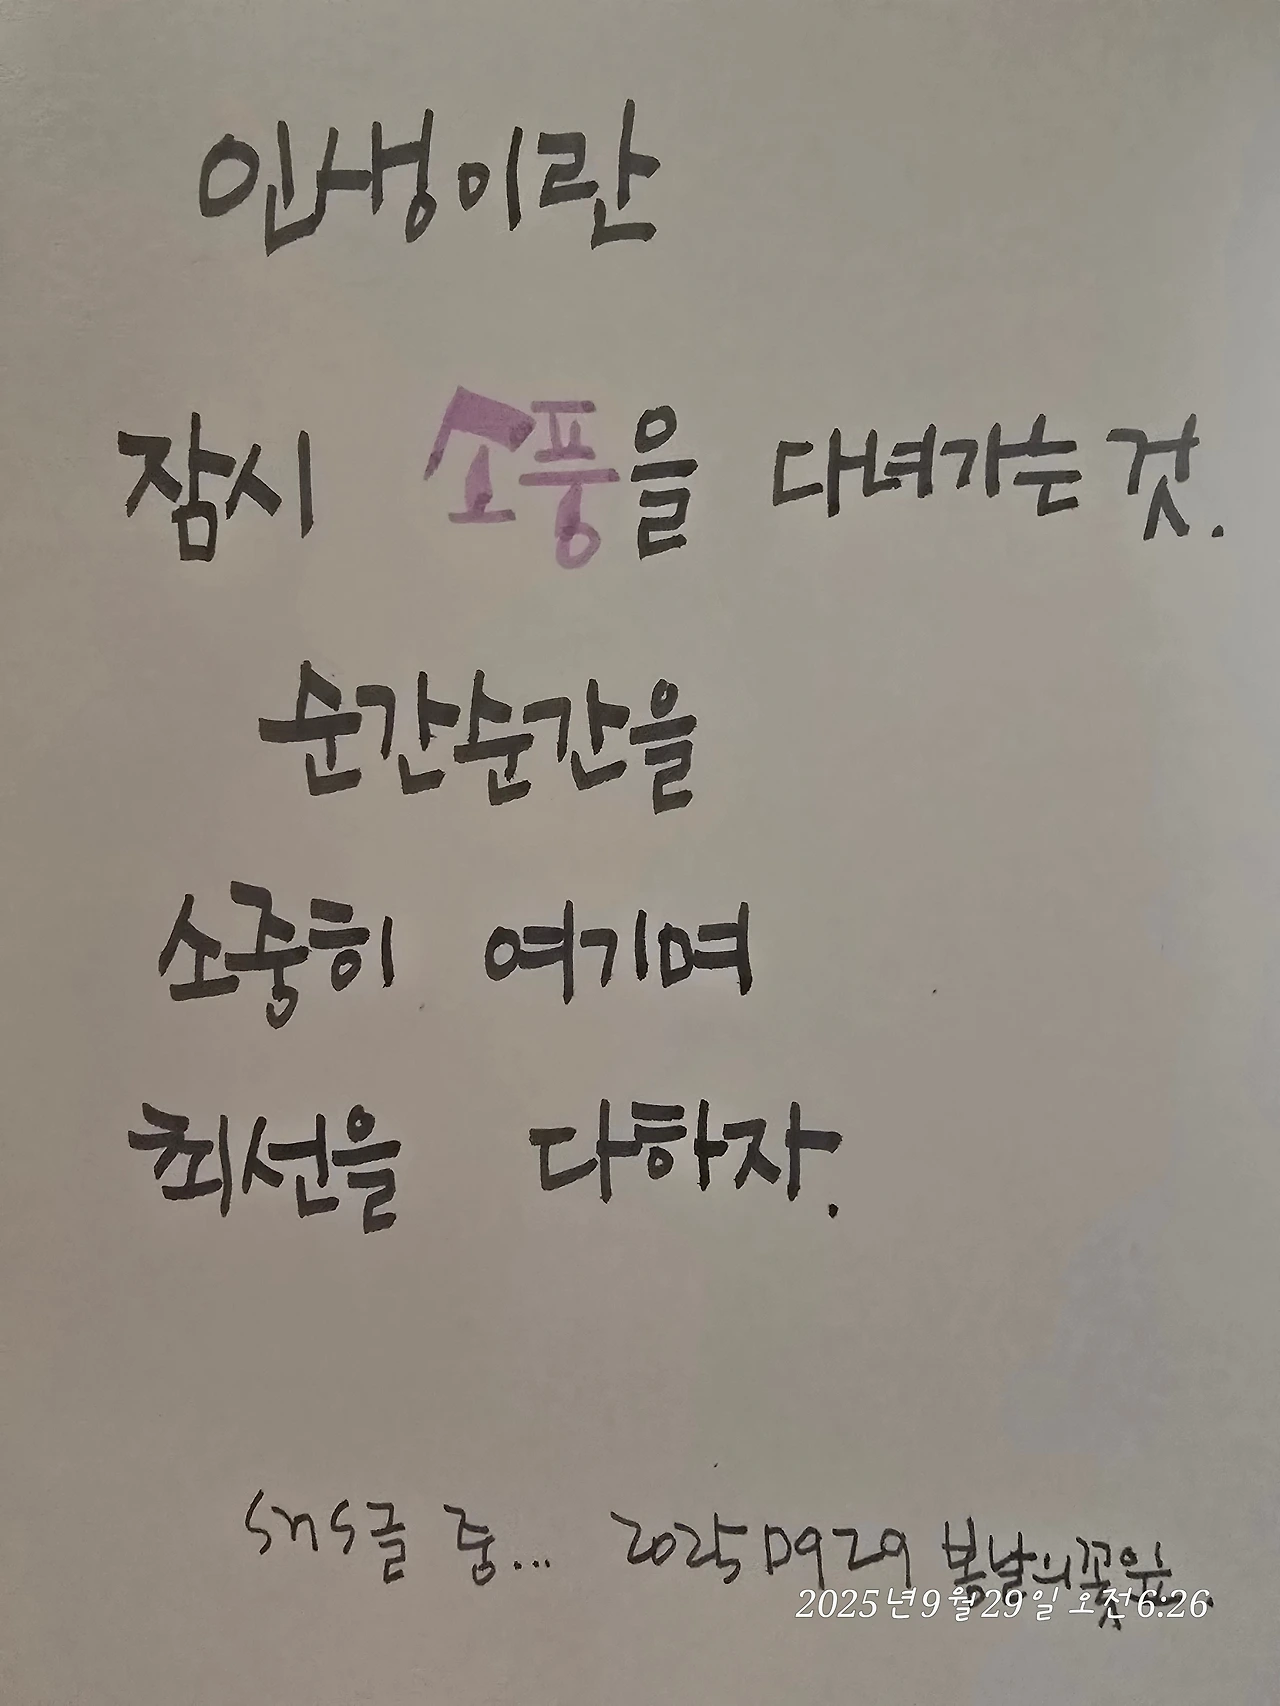 인생이란
잠시 소풍을 다녀가는 것.
순간순간을
소중히 여기며
최선을 다하자.
SnS글 중... 20250929 봄날의꽃잎.
2025년 9월 29일 오전 6:26